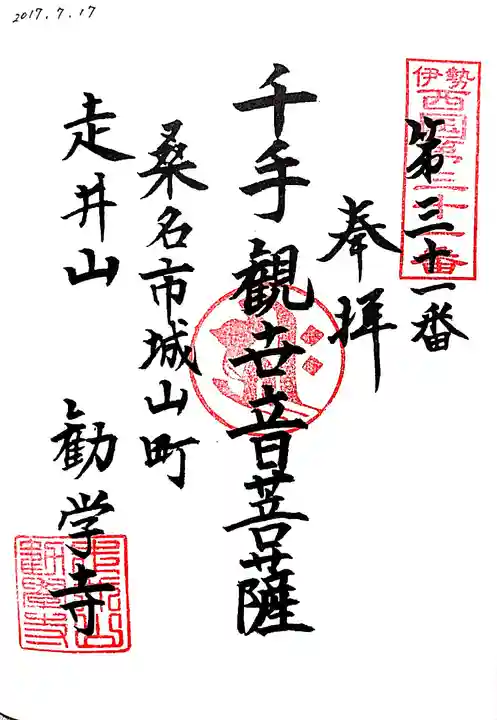 2017.7.17
伊勢
西国第三十一番
第三十一番
奉拝
千手観世音菩薩
桑名市城山町
走井山
勧学寺